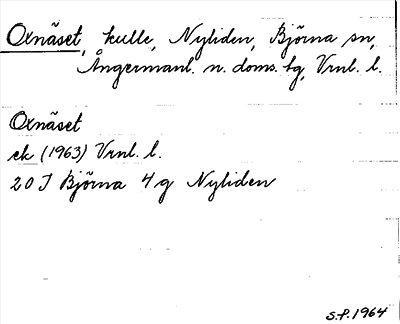 Oxnäset, kulle, Nyliden, Björna sn,
Ångermanl. n. doms. tg, Vrnl. l.
Oxnäset
ek (1963) Vrnl. l.
20 J Björna 4 g Nyliden
S.P. 1964